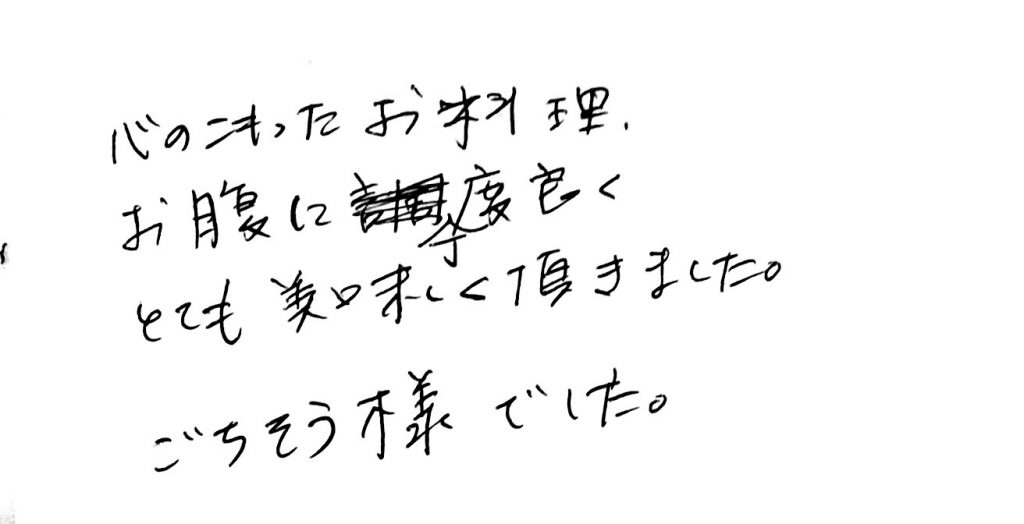 心のこもったお料理.
お腹に今度良く
とても美味しく頂きました。
ごちそう様でした。